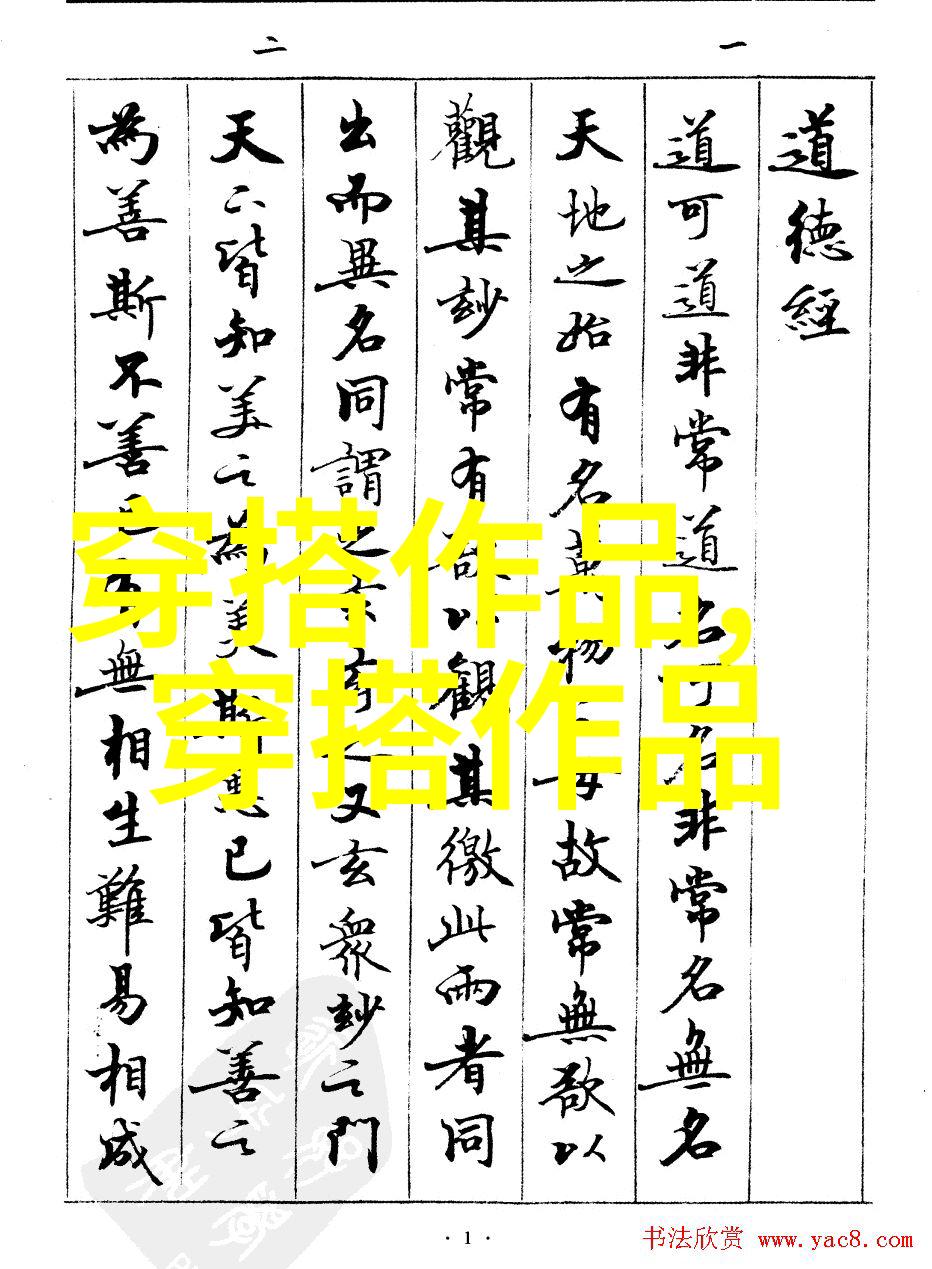 一
二
道德經
道可道非常道名可名非常名無名
天地之始有名萬物母故常無欲以
觀其玅常有欲以觀其徼此兩者同
出而異名同謂之玄玄之又玄衆玅之門
天下皆知美之為美斯惡已皆知善之
為善斯不善已無相生難易相成
穿搭作品,
穿搭作品
· 1 ·
书法欣赏 www.yac8.com